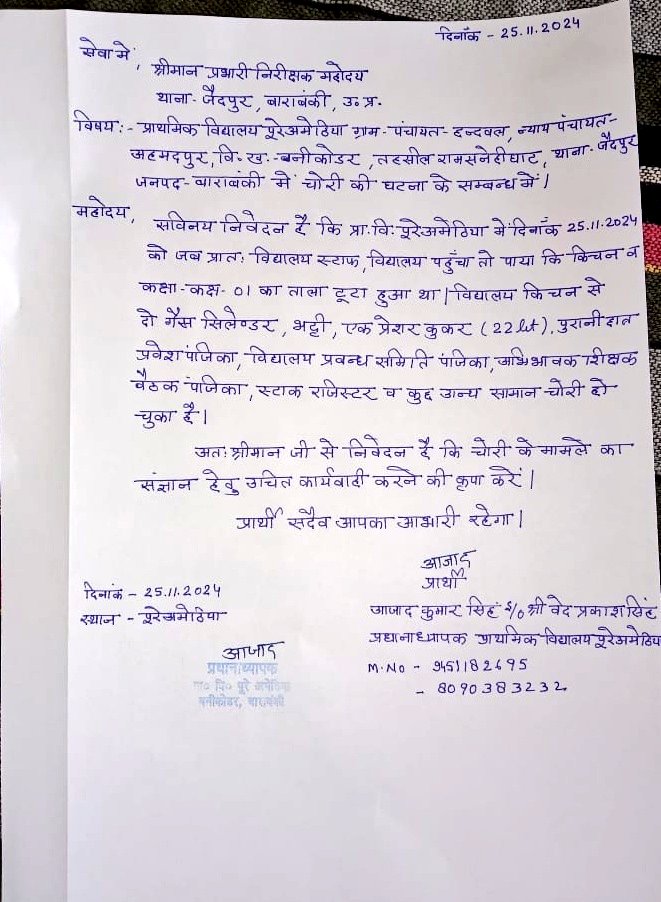 दिनाँक - 25.11.2024
सेवा में,
श्रीमान प्रभारी निरीक्षक महोदय
थाना- जैदपुर, बाराबंकी, उ० प्र०
विषय:- प्राथमिक विद्यालय पूरेअमेठिया ग्राम-पंचायत- इन्दवल, न्याय पंचायत-
अहमदपुर, वि० ख०- बनीकोडर, तहसील रामसनेहीघाट, थाना- जैदपुर
जनपद- बाराबंकी में चोरी की घटना के सम्बन्ध में।
महोदय,
सविनय निवेदन है कि प्रा० वि० पूरेअमेठिया में दिनाँक 25.11.2024
को जब प्रातः विद्यालय स्टाफ, विद्यालय पहुँचा तो पाया कि किचन व
कक्षा-कक्ष- 01 का ताला टूटा हुआ था। विद्यालय किचन से
दो गैस सिलेण्डर, भट्टी, एक प्रेशर कुकर (22 lit), पुरानी छात्र
प्रवेश पंजिका, विद्यालय प्रबन्ध समिति पंजिका, अभिभावक शिक्षक
बैठक पंजिका, स्टाक रजिस्टर व कुछ अन्य सामान चोरी हो
चुका है।
अतः श्रीमान जी से निवेदन है कि चोरी के मामले का
संज्ञान हेतु उचित कार्यवादी करने की कृपा करें।
प्रार्थी सदैव आपका आभारी रहेगा।
आजाद
प्रार्थी
दिनाँक - 25.11.2024
स्थान - पूरेअमेठिया
आजाद कुमार सिंह S/o श्री वेद प्रकाश सिंह
प्रधानाध्यापक प्राथमिक विद्यालय पूरेअमेठिया
M.No - 9451182695
- 8090383232
आजाद
प्रधानाध्यापक
प्रा० वि० पूरे अमेठिया
बनीकोडर, बाराबंकी